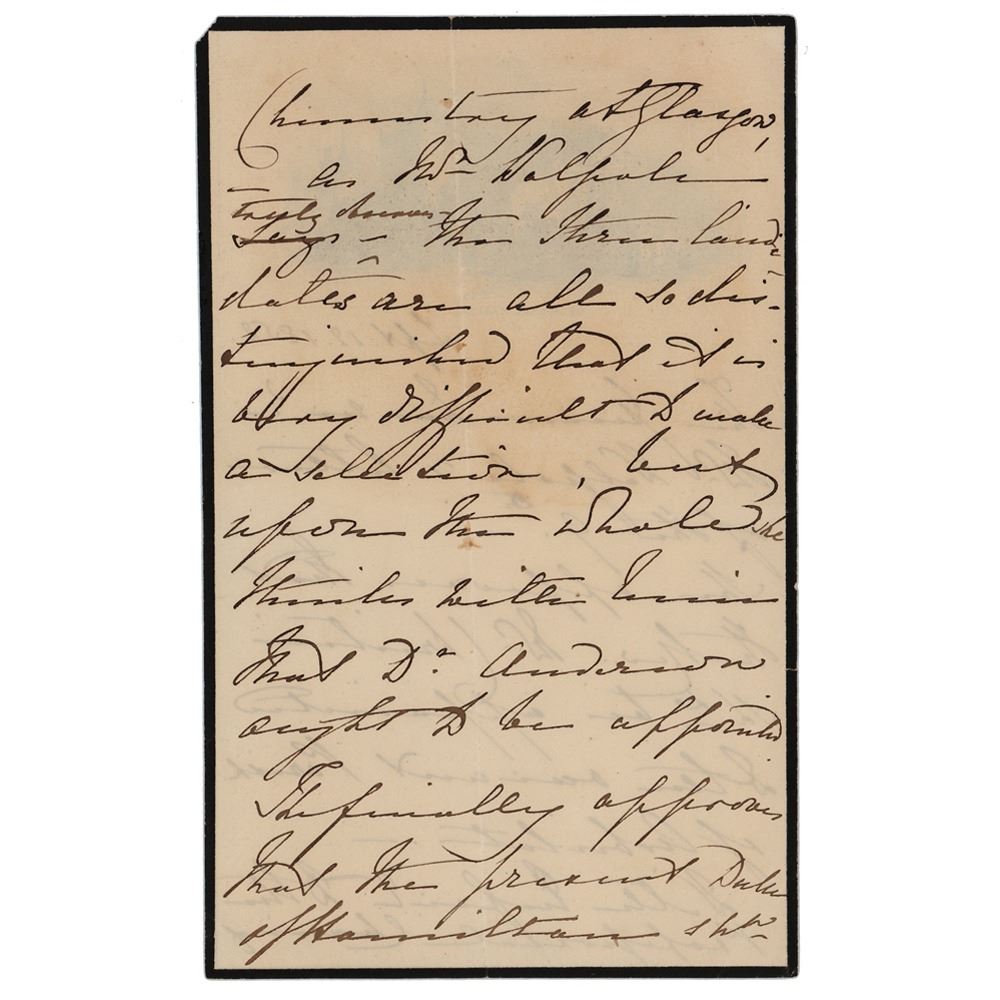 Chemistry at Glasgow,
– as Mr. Walpole
truly observes
says – the three candi-
dates are all so dis-
tinguished that it is
very difficult to make
a selection, but
upon the whole she
thinks with him
that Dr. Anderson
ought to be appointed
She finally approves
that the present Duke
of Hamilton shd